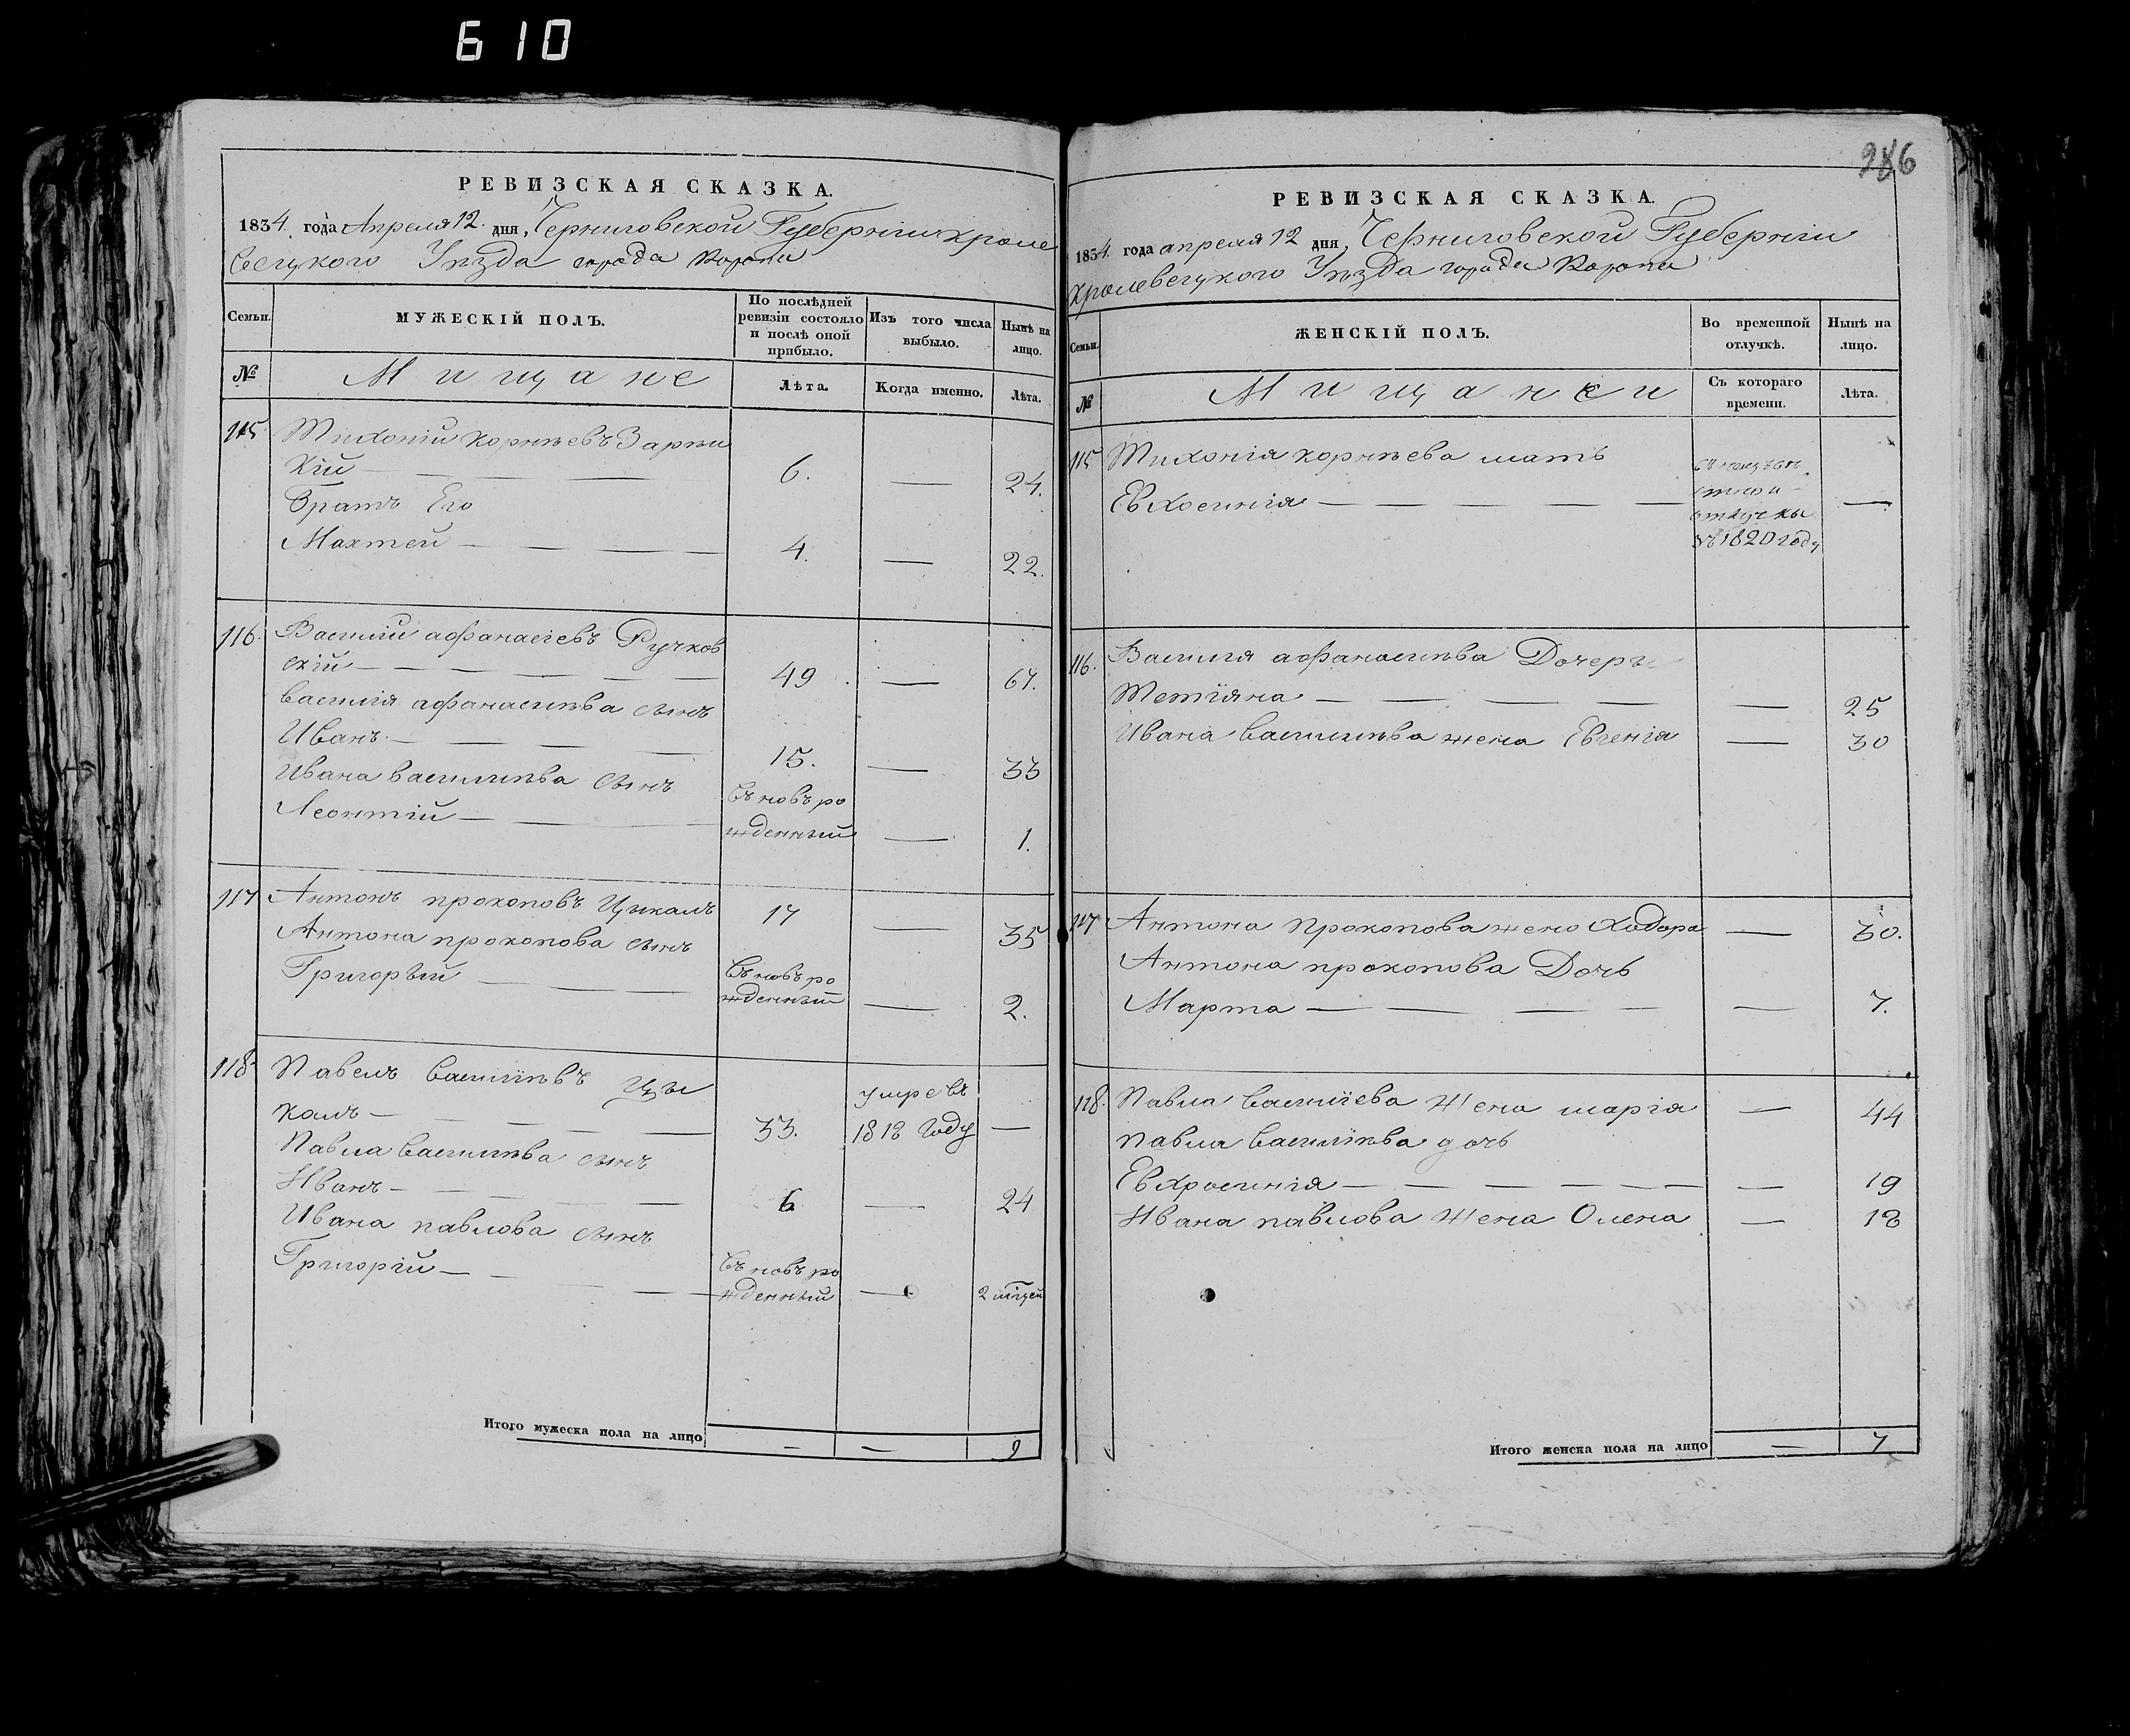 610
РЕВИЗСКАЯ СКАЗКА.
1834. года Апреля 12. дня, Черниговской Губернiи Кроле
вецкого Уѣзда города Коропа
Семьи.
МУЖЕСКIЙ ПОЛЪ.
По послѣдней ревизiи состояло и послѣ оной прибыло.
Изъ того числа выбыло.
Нынѣ на лицо.
№
Мищане
Лѣта.
Когда именно.
Лѣта.
115 Тихонiй Корнѣевъ
кiй — 6. — 24.
Братъ Его
Махтей — 4. — 22.
116. Василiй афанасiевъ Ручков
скiй — 49 — 67.
василiя афанасиѣва сынъ
Иванъ — 15. — 33
Ивана василиѣва сынъ
Леонтiй — Съновъ ро
жденный — 1.
117 Антонъ прокоповъ Цыкалъ 17 — 35
Антона прокопова сынъ
Григорьй — Съновъ ро
жденный — 2.
118. Павелъ василiѣвъ Цы
калъ — 33. умре въ 1818 году —
Павла василиѣва сынъ
Иванъ — 6 — 24
Ивана павлова сынъ
Григорiй — Съновъ ро
жденный — 2
Итого мужеска пола на лицо — — 9
286
РЕВИЗСКАЯ СКАЗКА.
1834. года апреля 12 дня, Черниговской Губернiи
Кролевецкого Уѣзда города Коропа
Семьи.
ЖЕНСКIЙ ПОЛЪ.
Во временной отлучкѣ.
Нынѣ на лицо.
№
Мищанки
Съ котораго времени.
Лѣта.
115 Тихонiя корнѣева мать
Евхосинiя —
отлучки
зъ 1820 году —
116. Василя афанасиѣва Дочеръ
Тетiяна — — 25
Ивана василиѣва жена Евгенiя — 30
117 Антона Прокопова жена Ходора — 30.
Антона прокопова Дочь
Марта — — 7.
118. Павла василiева жена марiя — 44
Павла василiѣва дочь
Евхросинiя — — 19
Ивана павлова жена Олена — 18
Итого женска пола на лицо — 7